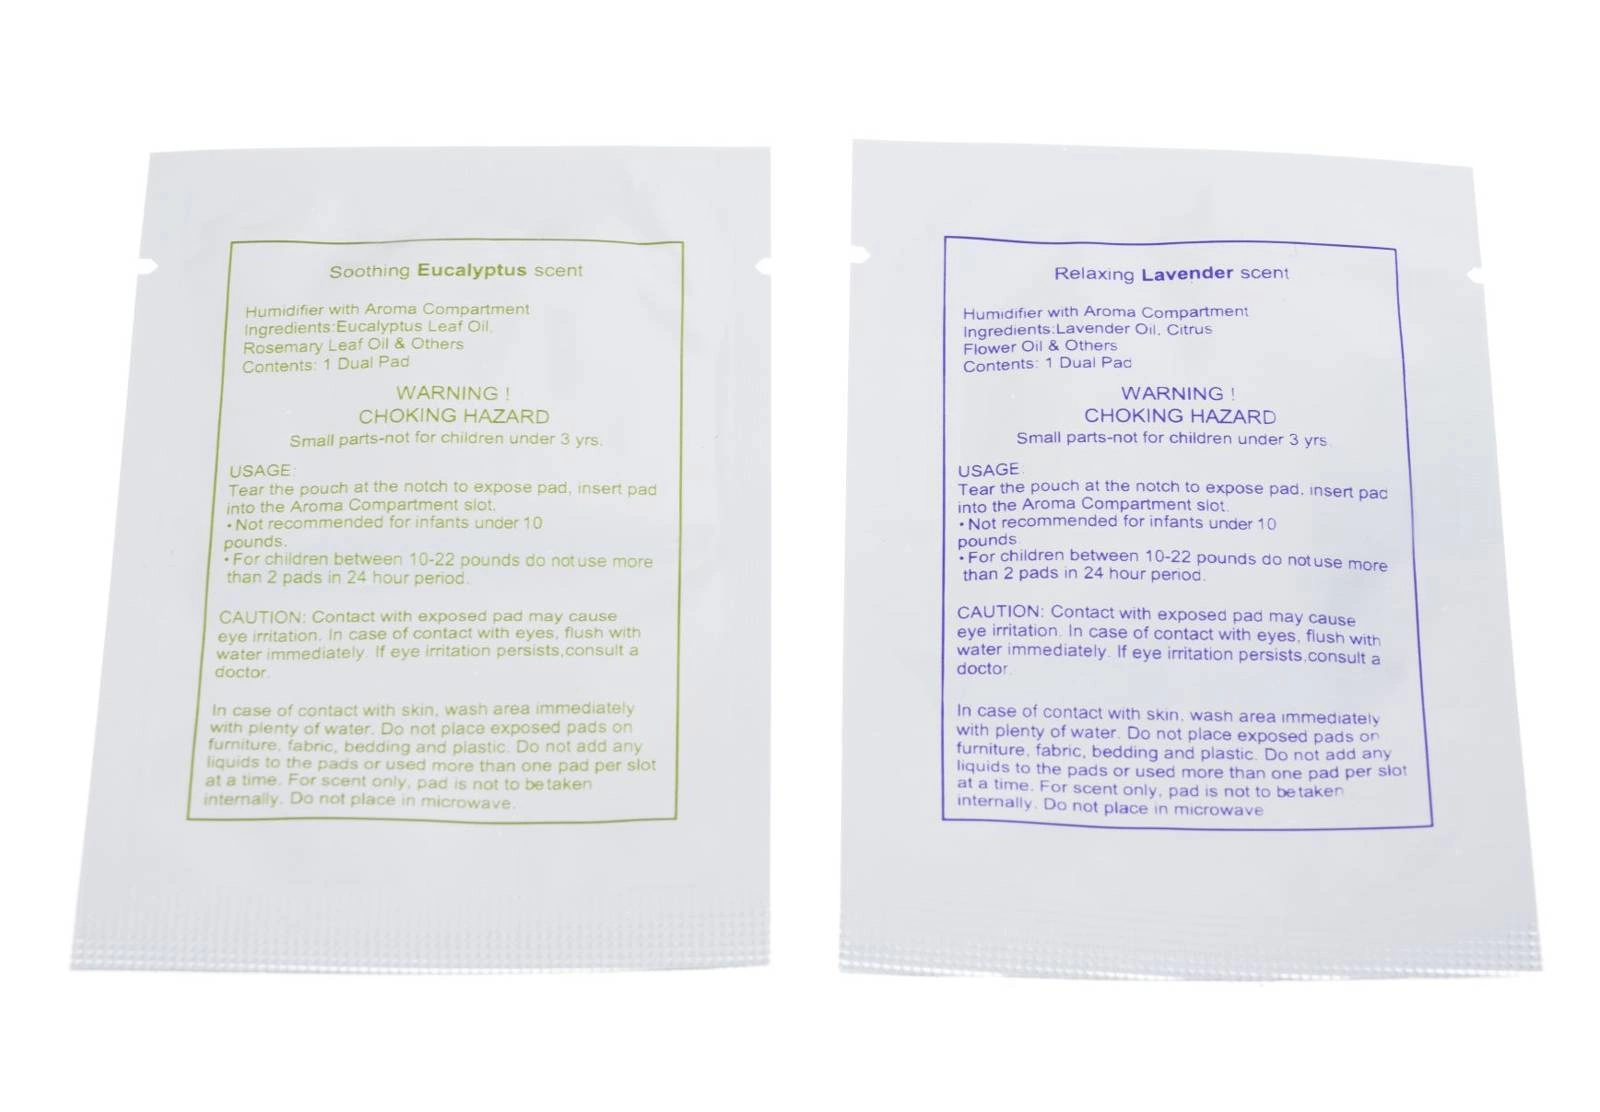 Soothing Eucalyptus scent
Humidifier with Aroma Compartment
Ingredients:Eucalyptus Leaf Oil,
Rosemary Leaf Oil & Others
Contents: 1 Dual Pad
WARNING !
CHOKING HAZARD
Small parts-not for children under 3 yrs.
USAGE:
Tear the pouch at the notch to expose pad, insert pad
into the Aroma Compartment slot.
•Not recommended for infants under 10
pounds.
•For children between 10-22 pounds do not use more
than 2 pads in 24 hour period.
CAUTION: Contact with exposed pad may cause
eye irritation. In case of contact with eyes, flush with
water immediately. If eye irritation persists,consult a
doctor.
In case of contact with skin, wash area immediately
with plenty of water. Do not place exposed pads on
furniture, fabric, bedding and plastic. Do not add any
liquids to the pads or used more than one pad per slot
at a time. For scent only, pad is not to be taken
internally. Do not place in microwave.
Relaxing Lavender scent
Humidifier with Aroma Compartment
Ingredients:Lavender Oil, Citrus
Flower Oil & Others
Contents: 1 Dual Pad
WARNING !
CHOKING HAZARD
Small parts-not for children under 3 yrs.
USAGE:
Tear the pouch at the notch to expose pad, insert pad
into the Aroma Compartment slot.
•Not recommended for infants under 10
pounds.
•For children between 10-22 pounds do not use more
than 2 pads in 24 hour period.
CAUTION: Contact with exposed pad may cause
eye irritation. In case of contact with eyes, flush with
water immediately. If eye irritation persists,consult a
doctor.
In case of contact with skin, wash area immediately
with plenty of water. Do not place exposed pads on
furniture, fabric, bedding and plastic. Do not add any
liquids to the pads or used more than one pad per slot
at a time. For scent only, pad is not to be taken
internally. Do not place in microwave